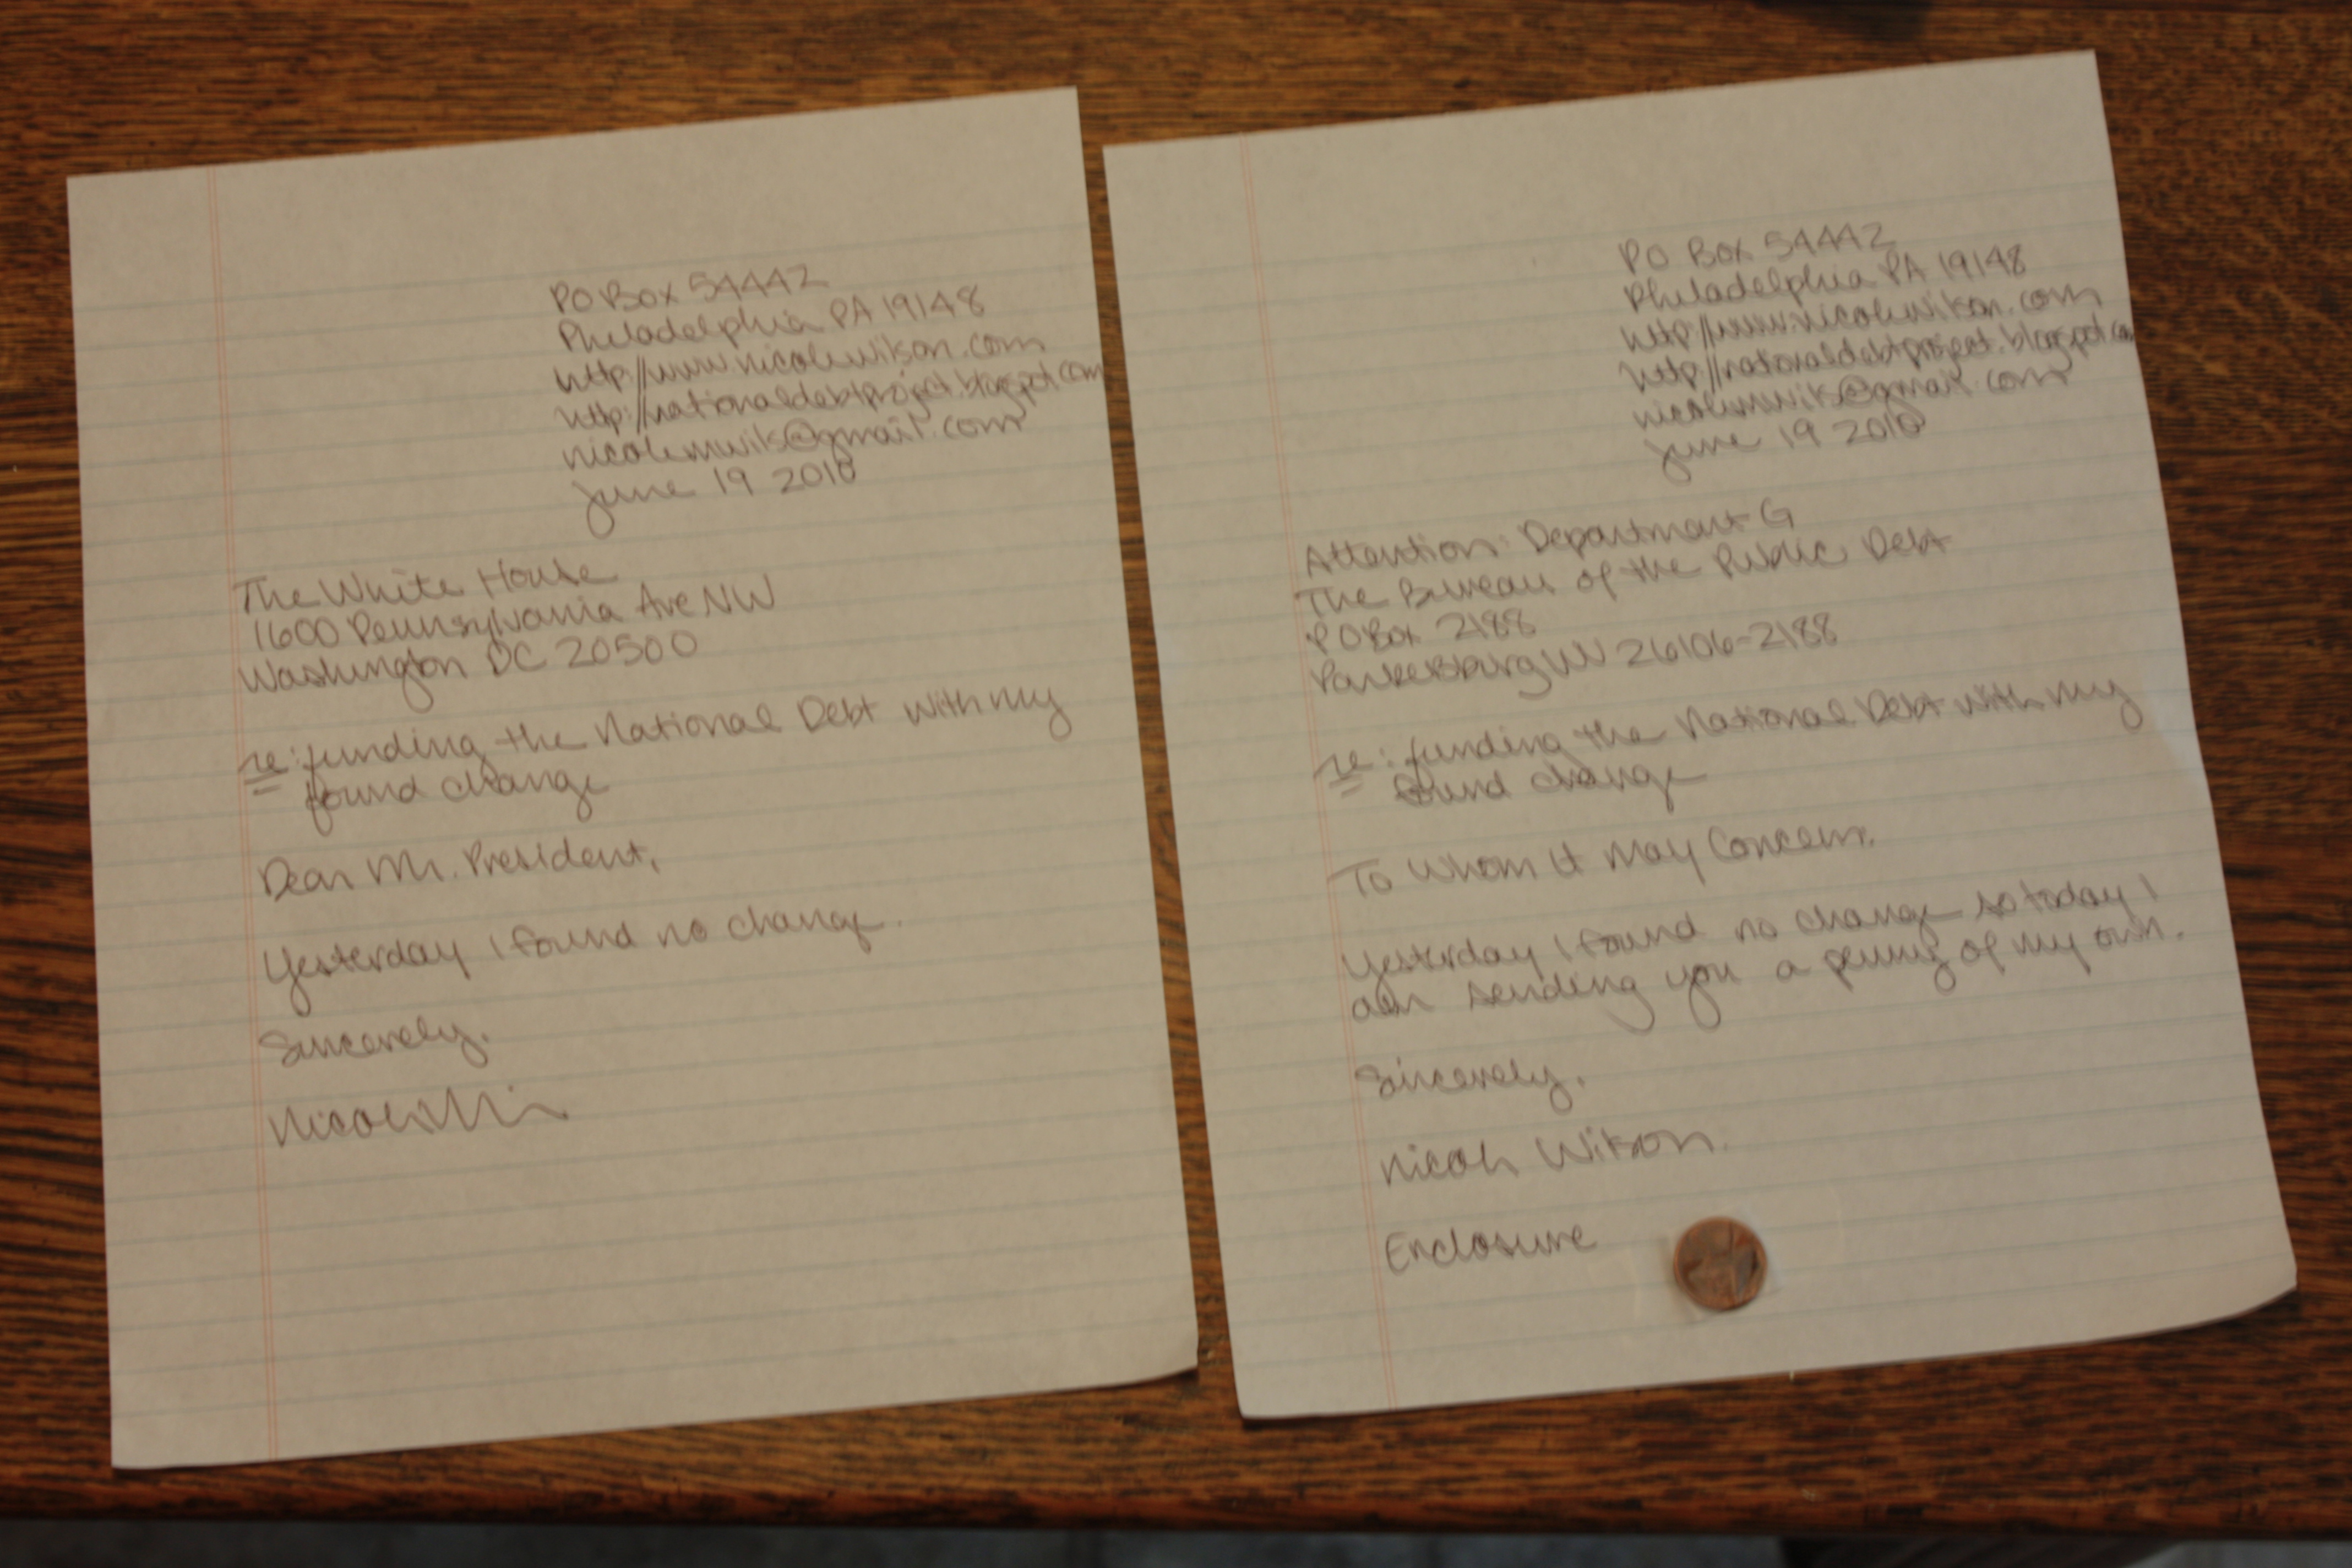 PO Box 54442
Philadelphia PA 19148
http://www.nicolewilson.com
http://nationaldebtproject.blogspot.com
nicolemwils@gmail.com
June 19 2010
The White House
1600 Pennsylvania Ave NW
Washington DC 20500
re: funding the National Debt with my
found change
Dear Mr. President,
Yesterday I found no change.
Sincerely,
PO Box 54442
Philadelphia PA 19148
http://www.nicolewilson.com
http://nationaldebtproject.blogspot.co
nicolemwils@gmail.com
June 19 2010
Attention: Department G
The Bureau of the Public Debt
PO Box 2188
Parkersburg WV 26106-2188
re: funding the National Debt with my
found change
To Whom It May Concern,
Yesterday I found no change so today I
am sending you a penny of my own.
Sincerely,
Nicole Wilson
Enclosure